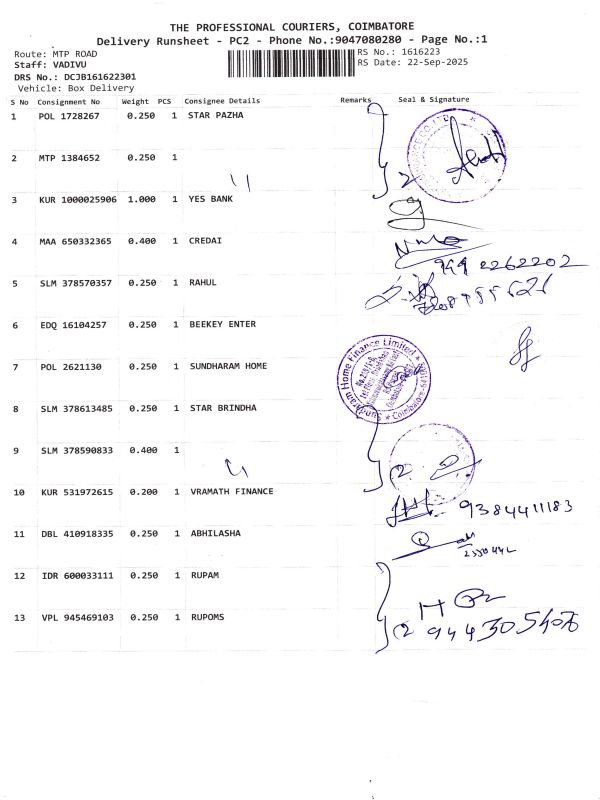 THE PROFESSIONAL COURIERS, COIMBATORE
Delivery Runsheet - PC2 - Phone No.:9047080280 - Page No.:1
Route: MTP ROAD
Staff: VADIVU
DRS No.: DCJB161622301
Vehicle: Box Delivery
RS No.: 1616223
RS Date: 22-Sep-2025
S No Consignment No Weight PCS Consignee Details Remarks Seal & Signature
1 POL 1728267 0.250 1 STAR PAZHA
2 MTP 1384652 0.250 1
2
3 KUR 1000025906 1.000 1 YES BANK
4 MAA 650332365 0.400 1 CREDAI
5 SLM 378570357 0.250 1 RAHUL
6 EDQ 16104257 0.250 1 BEEKEY ENTER
7 POL 2621130 0.250 1 SUNDHARAM HOME
Sundaram Home Finance Limited
Coimbatore
8 SLM 378613485 0.250 1 STAR BRINDHA
9 SLM 378590833 0.400 1
2
10 KUR 531972615 0.200 1 VRAMATH FINANCE
9384411183
11 DBL 410918335 0.250 1 ABHILASHA
12 IDR 600033111 0.250 1 RUPAM
13 VPL 945469103 0.250 1 RUPOMS
2